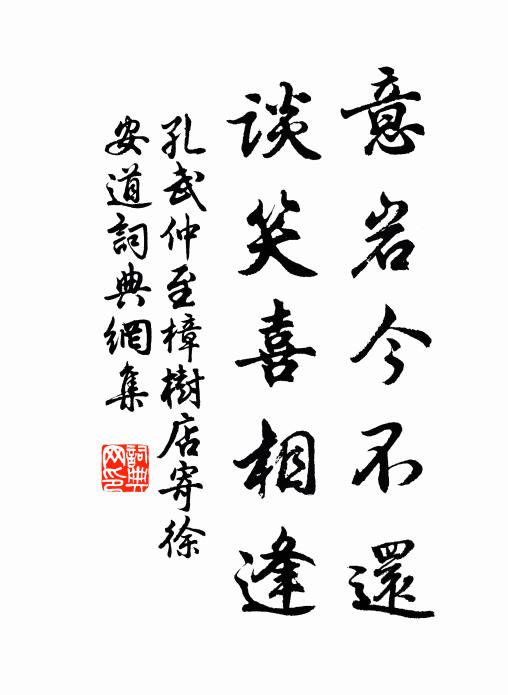 意岩今不還
談笑喜相逢
孔武仲至樟樹店寄徐
安道詞典網集
詞典
网印